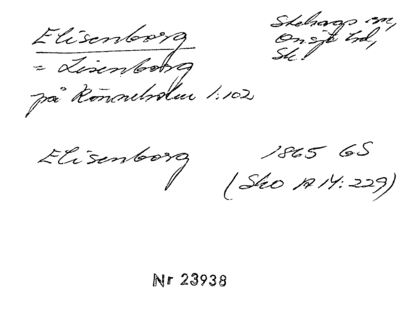 Elisenborg
Stehags sn,
Onsjö hd,
Sk.
= Lisenborg
på Rönneholm 1:102
Elisenborg 1865 GS
(Sko A 14:229)
Nr 23938